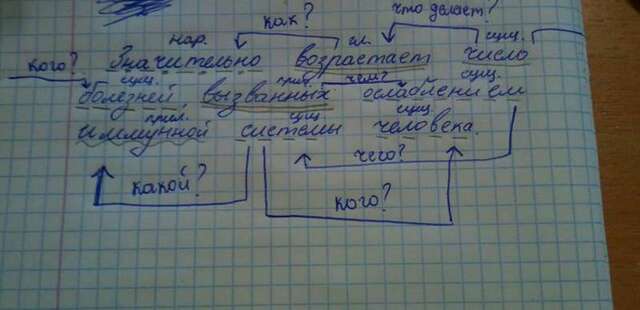 как? что делает?
нар. гл. сущ.
кого? Значительно возрастает число
сущ. прил. чем? сущ.
болезней вызванных ослаблением
прил. сущ. сущ.
иммунной системы человека.
чего?
какой? кого?